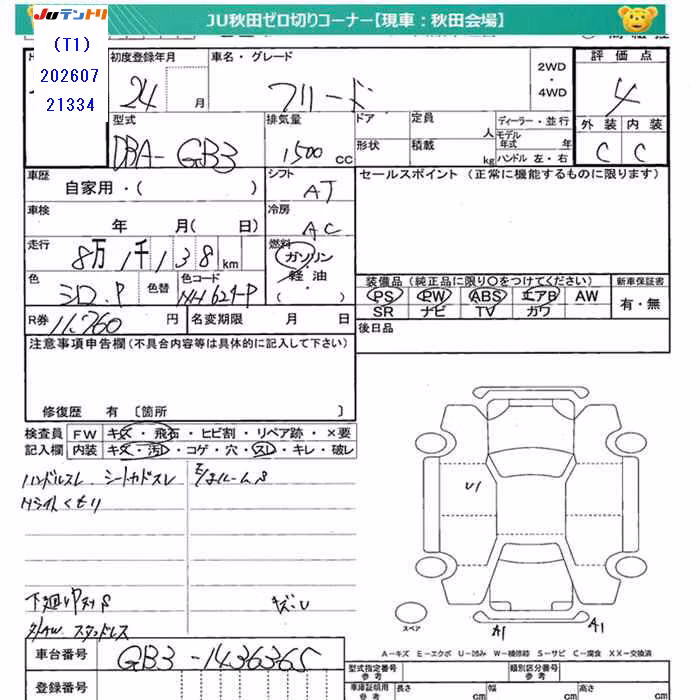 Juテントリ
JU秋田ゼロ切りコーナー【現車：秋田会場】
(T1)
202607
21334
初度登録年月
24 月
車名・グレード
フリード
2WD
・
4WD
評価点
4
型式
DBA-GB3
排気量
1500 cc
ドア
形状
定員 人
積載 kg
ディーラー・並行
モデル年式 年
ハンドル 左・右
外装 内装
C C
車歴
自家用・( )
シフト
AT
セールスポイント (正常に機能するものに限ります)
車検
年 月( 日)
冷房
AC
走行
8万1千138km
燃料
ガソリン
・
軽油
( )
色
シロ.P
色替
色コード
NH624-P
装備品 (純正品に限り○をつけてください)
新車保証書
PS PW ABS エアB AW
SR ナビ TV カワ
有・無
R券 11,760 円
名変期限 月 日
後日品
注意事項申告欄 (不具合内容等は具体的に記入して下さい)
修復歴 有 〔箇所 〕
検査員
記入欄
FW キズ・飛石・ヒビ割・リペア跡・×要
内装 キズ・汚レ・コゲ・穴・スレ・キレ・破レ
ハンドルスレ.シートカドスレ
Hライトくもり
キズ・U
スタッドレス
U1
スペア
A1
A1
A－キズ E－エクボ U－凹み W－補修跡 S－サビ C－腐食 XX－交換済
車台番号
GB3-1436365
登録番号
型式指定番号
参考
類別区分番号
参考
車庫証明用
参考
長さ cm
幅 cm
高さ cm